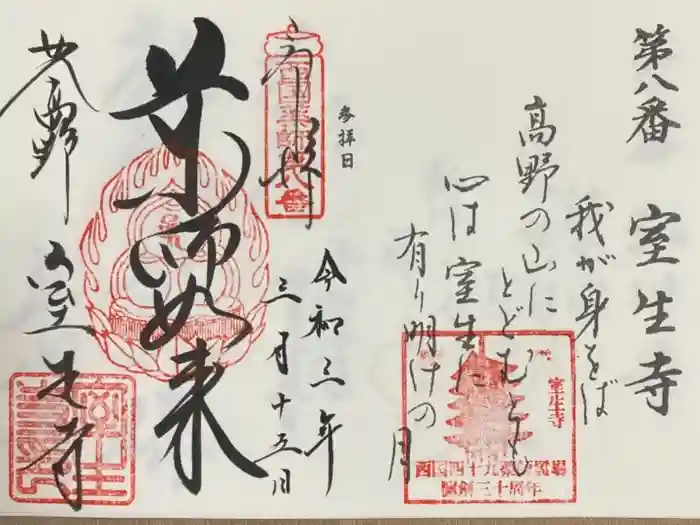 第八番 室生寺
我が身をば
高野の山に
とどむとも
心は室生に
有り明けの月
室生寺
西国四十九薬師霊場
開創三十周年
参拝日
令和三年
三月十五日
奉拝
西国薬師第八番
薬師如来
女人高野
室生寺